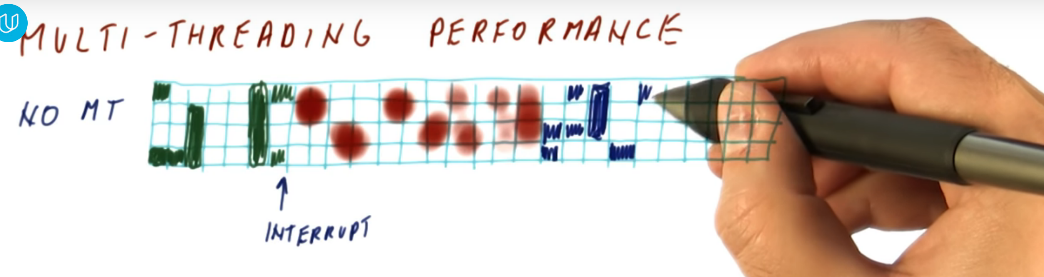 MULTI-THREADING PERFORMANCE
NO MT
INTERRUPT